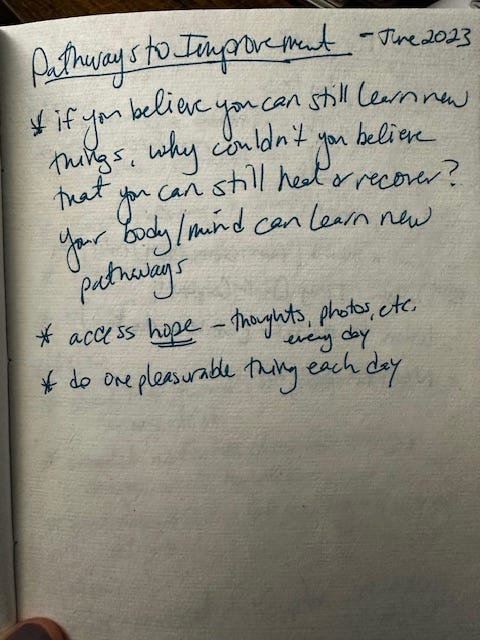 Pathways to Improvement - June 2023
* if you believe you can still learn new
things, why couldn't you believe
that you can still heal or recover?
your body/mind can learn new
pathways
* access hope - thoughts, photos, etc.
every day
* do one pleasurable thing each day